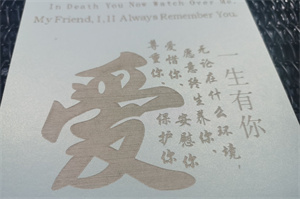 In Death You Now Watch Over Me,
My Friend, I,ll Always Remember You.
一生有你
无论在什么环境，
愿意终生养你、
爱惜你、安慰你、
尊重你、保护你
爱